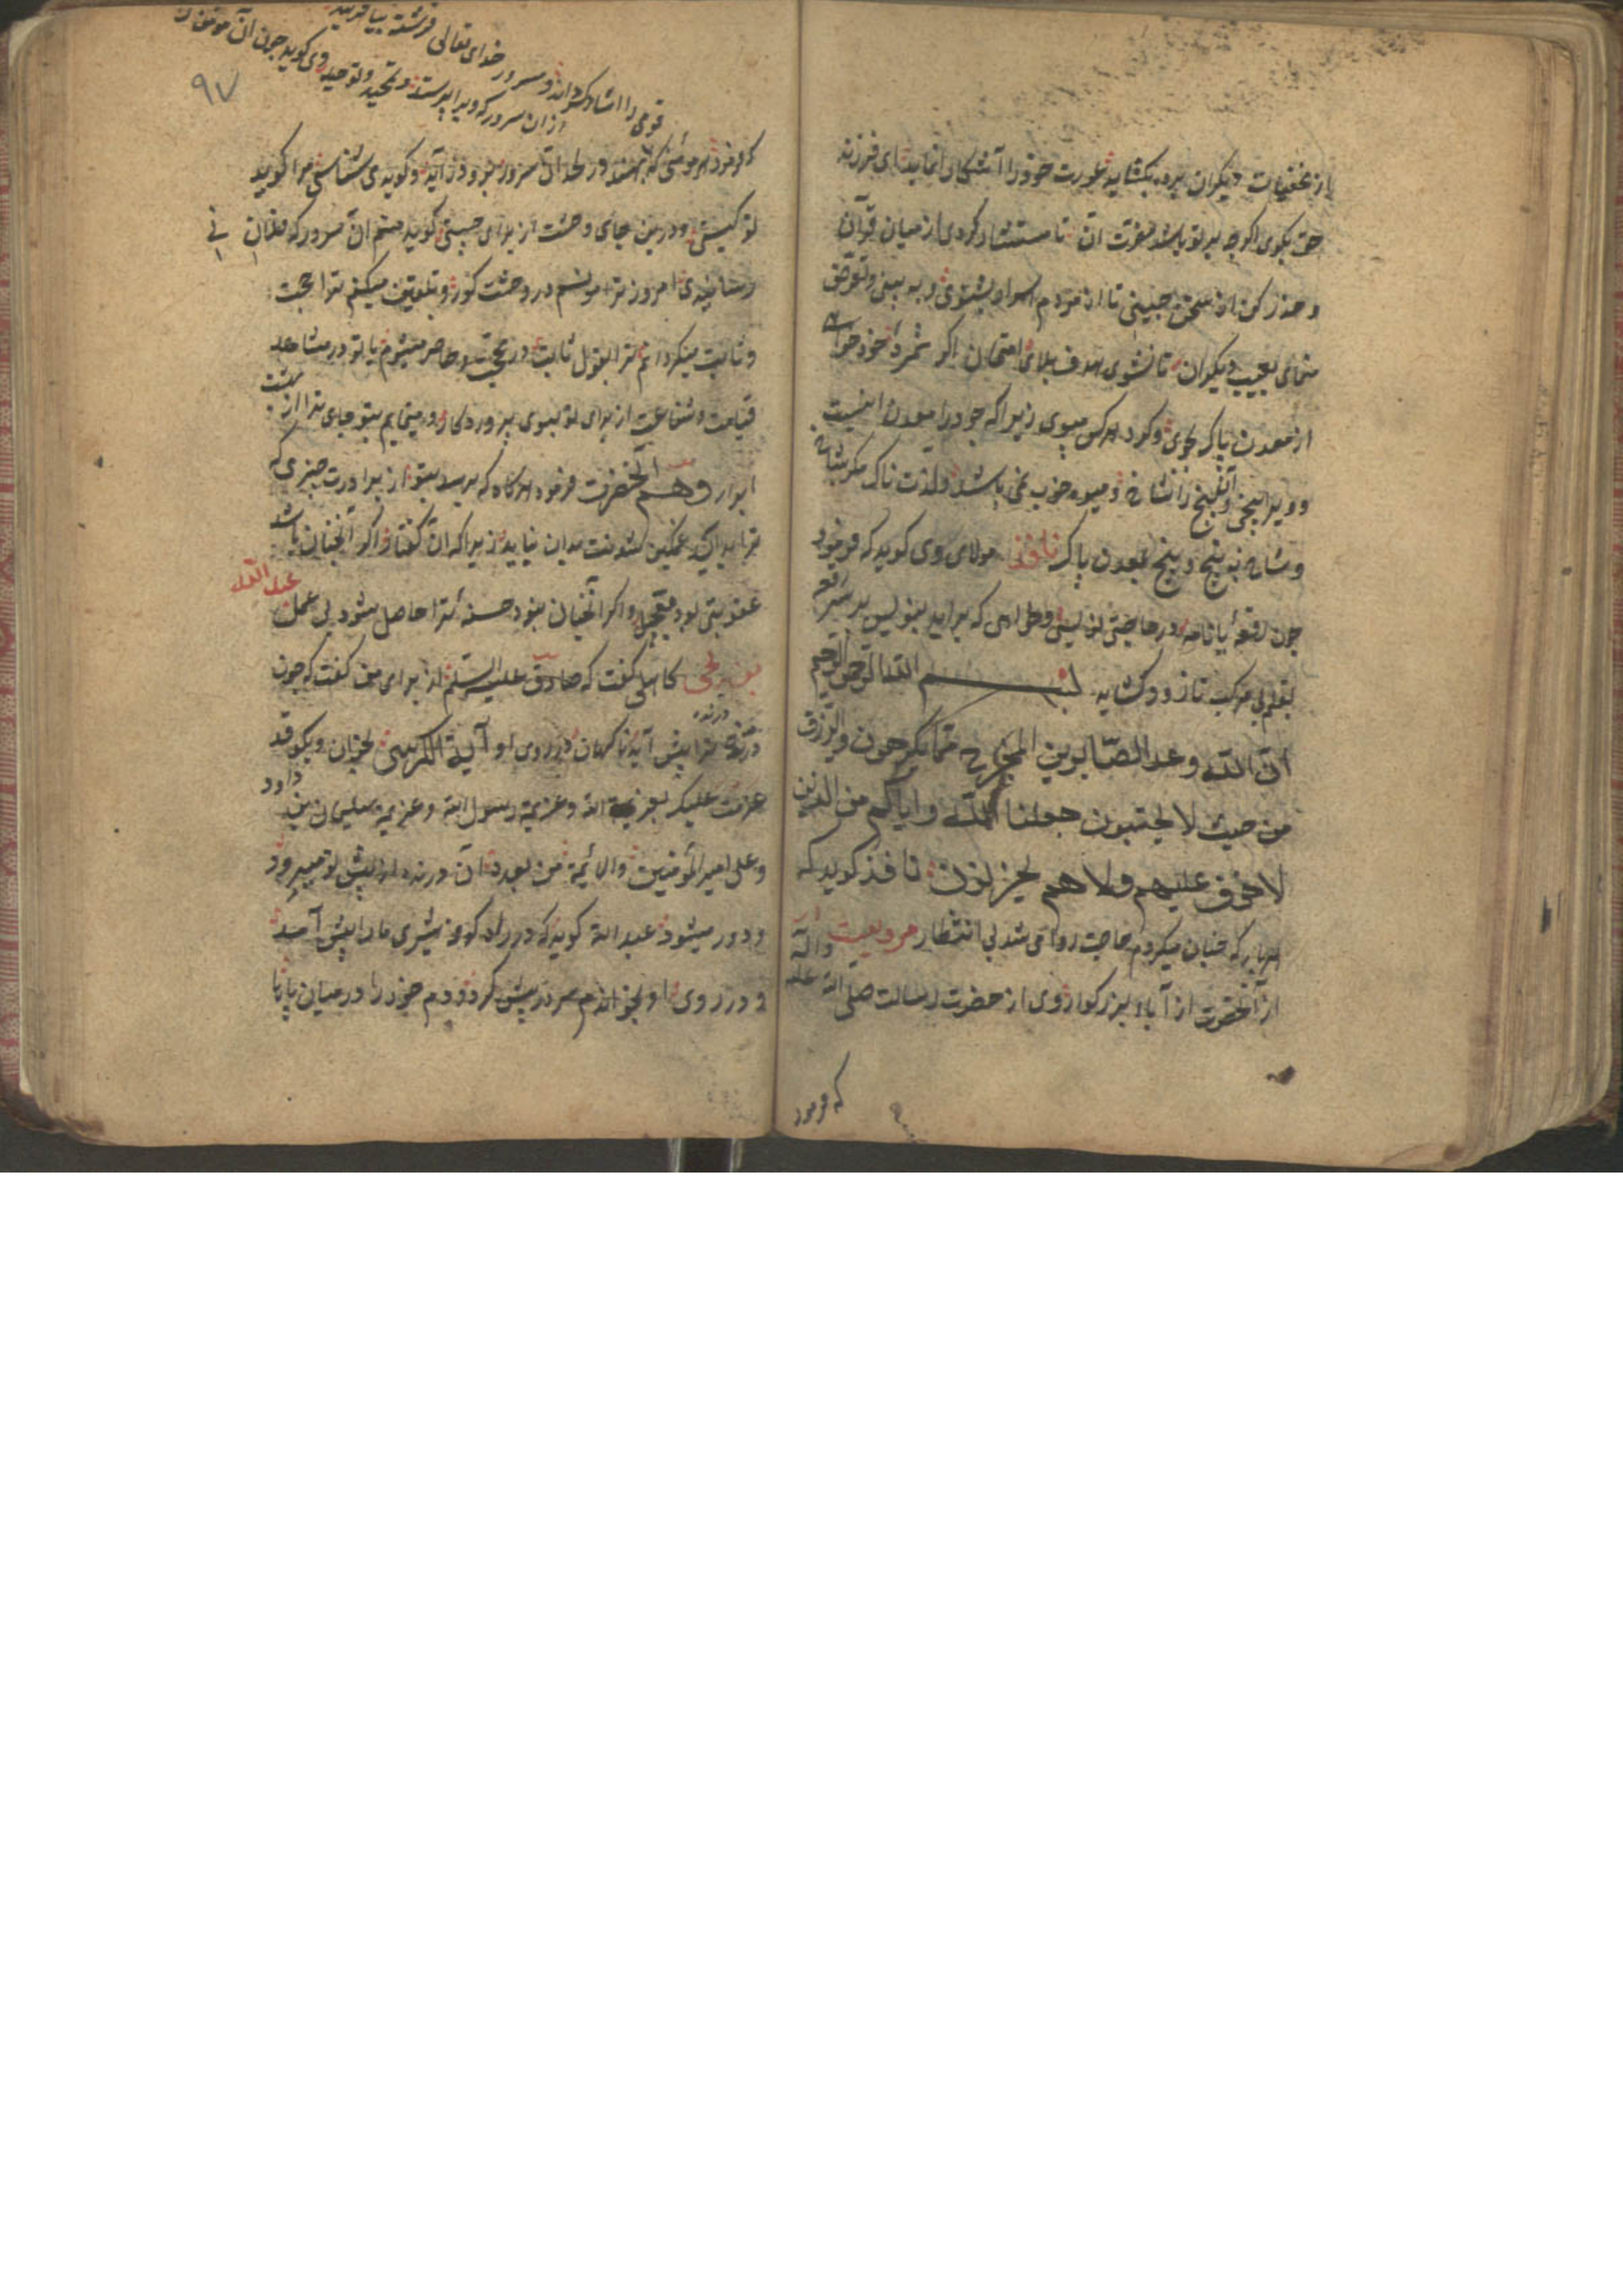 از مخفیات دیکران پرده بکشاید عورت خود را آشکار نماید ای فرزند
حق بکوی اکرچه بر تو باشد مضرت آن تا مستشار کردی از میان قرآن
و حذر کن از سخن چینی تا از مردم بشنوی و به بینی و تعرض
منمای بعیب دیکران تا نشوی هدف بلای امتحان اکر ثمره خود خواهی
از معدن پاک بجوی و کرد هر کس مپوی زیرا که جود را معدن است
و ویرا بیخی و آن بیخ را شاخ و میوه خوب نمی باشد و لذت ناک مکر بشاخ
و شاخ نه بیخ و بیخ بمعدن پاک نافذ مولای وی کوید که فرمود
چون رقعه یا نامه در حاجتی نویسی و خواهی که براید بنویس بر سر رقعه
بقلم بی مرکب تا زود کشاید بسم الله الرحمن الرحیم
ان الله وعد الصابرین المخرج مما یکرهون والرزق
من حیث لا یحتسبون جعلنا الله وایاکم من الذین
لا خوف علیهم ولا هم یحزنون نافذ کوید که
هربار که چنان میکردم حاجت روا می شد بی انتظار مرویست
از آنحضرت از آباء بزرکوار وی از حضرت رسالت صلی الله علیه وآله
که فرمود
۹۷
قومی را شاد کرداند و سرور خدای تعالی فرشته بیافریند
از ان سرور که ویرا پرستد و تمجید و توحید وی کوید چون آن مومن
که فرمود هر مومنی که بهند در لحد آن سرور بنزد وی آید و کوید می شناسی مرا کوید
تو کیستی و درین جای وحشت از برای چیستی کوید منم آن سرور که بفلان
رسانیدی امروز ترا مونسم در وحشت کور و تلقین میکنم ترا حجت
و ثابت میکردانم ترا بقول ثابت و حاضر میشوم با تو در مشاهد
قیامت و شفاعت از برای تو بسوی پروردکار و مینمایم بتو جای ترا از بهشت
ابرار وهم آنحضرت فرمود هرکاه که برسد بتو از برادرت چیزی که
ترا بد آید غمکین شدنت بدان نباید زیرا که ان کفتار اکر آنچنان باشد
عقوبتی بود معجل و اکر آنچنان نبود حسنه ترا حاصل شود بی عمل عبد الله
بن یحیی کاهلی کفت که صادق علیه السلم از برای من کفت که چون
درنده ترا پیش آید ناکهان در روی او آیة الکرسی بخوان و بکو قد
عزمت علیک بعزیمة الله وعزیمة رسول الله وعزیمة سلیمان بن داود
وعلی امیر المؤمنین والائمة من بعده آن درنده از پیش تو میرود
و دور میشود عبد الله کوید که در راه کوفه شیری مارا پیش آمد
و در روی او بخواندم سر در پیش کرد و دم خود را در میان پایها